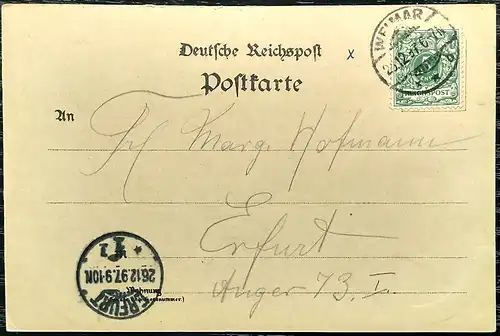 Deutsche Reichspost
x
Postkarte
WEIMAR
REICHSPOST
An
Frl Marg. Hofmann
Erfurt
Anger 73. I.
ERFURT
26.12.97.9-10N.
* 1 *
Wohnung